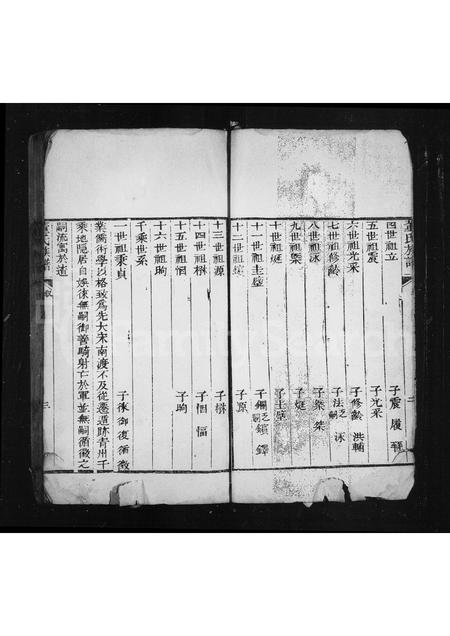 四世祖立 子震 履
五世祖震 子光采
六世祖光采 子修齡 洪輔
七世祖修齡 子法嗣之 泳
八世祖泳 子棨 桀
九世祖 子梃
十世祖梃 子圭璧
十一世祖圭璧 子
十二世祖 子源
十三世祖源 子樹
十四世祖樹 子悃 愊
十五世祖悃 子昫
十六世祖昫
千乘世系
一世祖秉貞 子徠 御 復 循 徽
業儒術學以格致爲先大宋南渡不及從遷遁跡青州千
乘地隱居自娛徠無嗣御善騎射亡於軍並無嗣循徽之
嗣流寓於遼
氏族譜
三